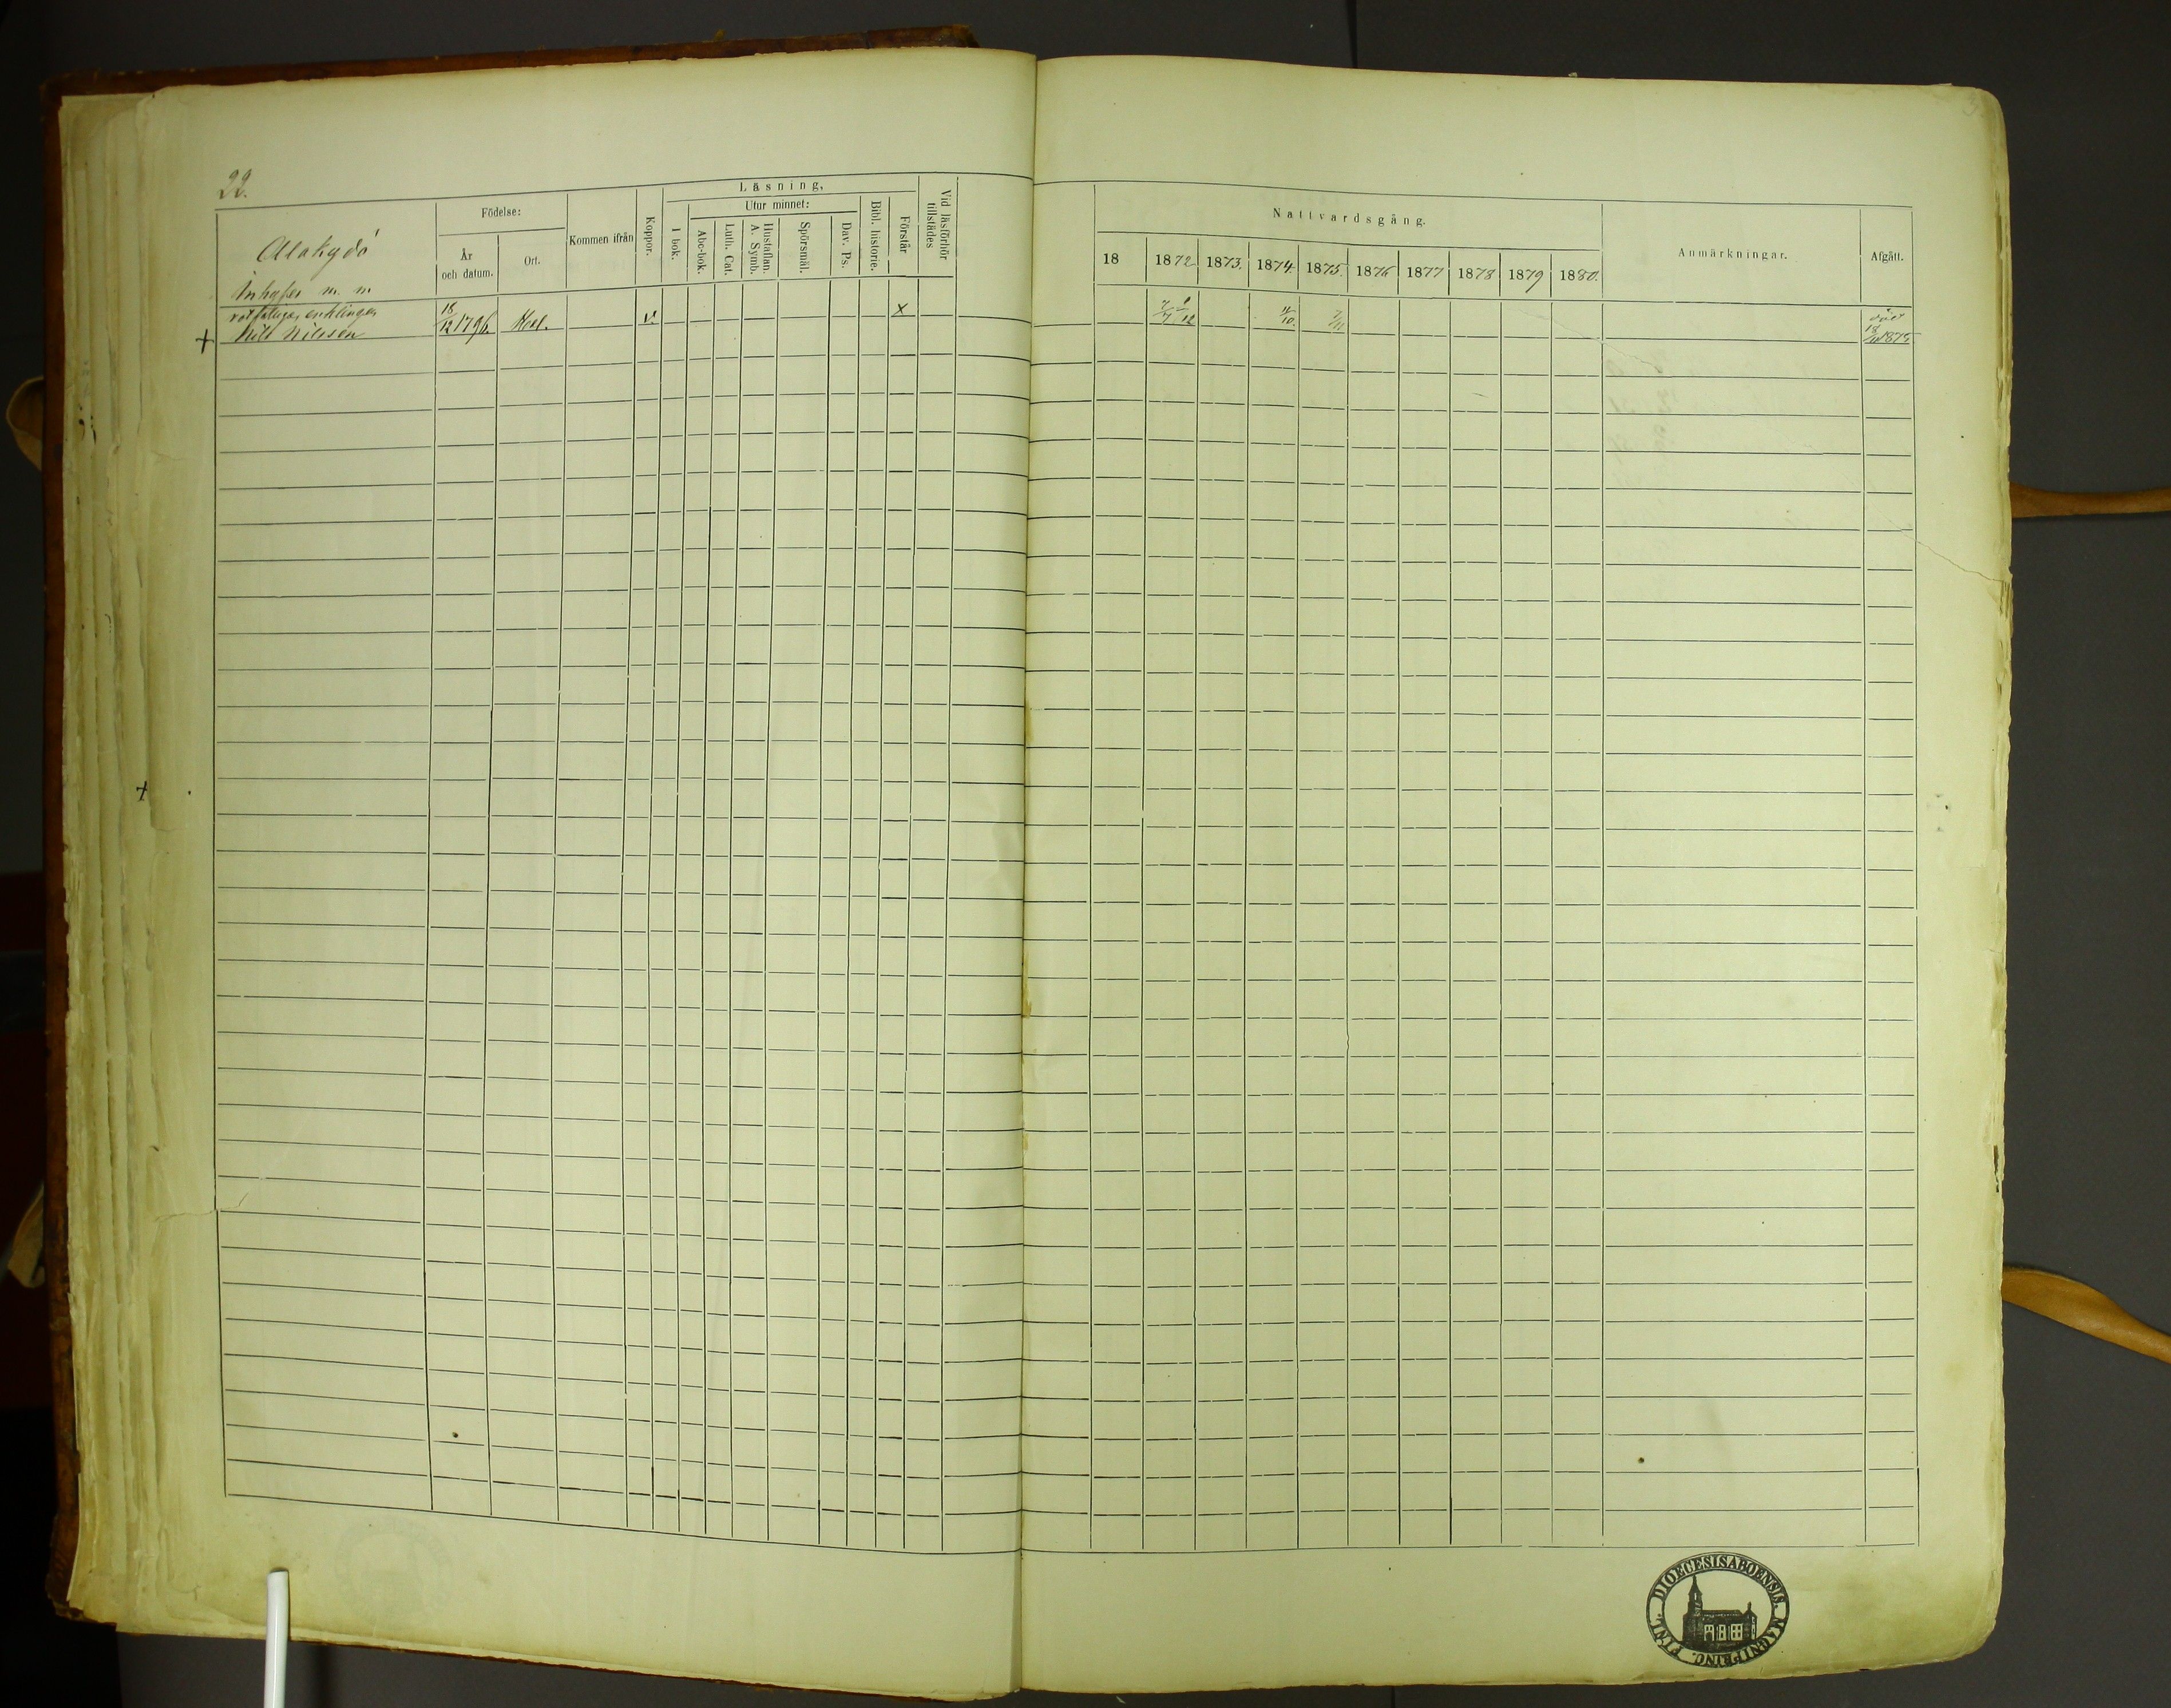 22.
Alakydö
Inhyses m. m.
Födelse:
År
och datum.
Ort.
Kommen ifrån
Koppor.
Läsning,
I bok.
Utur minnet:
Abc-bok.
Luth. Cat.
Hustaflan.
A. Symb.
Spörsmål.
Dav. Ps.
Bibl. historie.
Förstår
Vid läsförhör
tillstädes
Nattvardsgång.
18 1872 1873. 1874. 1875. 1876 1877 1878 1879 1880.
Anmärkningar.
Afgått.
enklingen
+ Nils Nilsson 18/12 1796 v. x 4/10. 7/11
död
18/11 1875
DIOECESIS ABOENSIS. MAGNI PRINC. FINL.